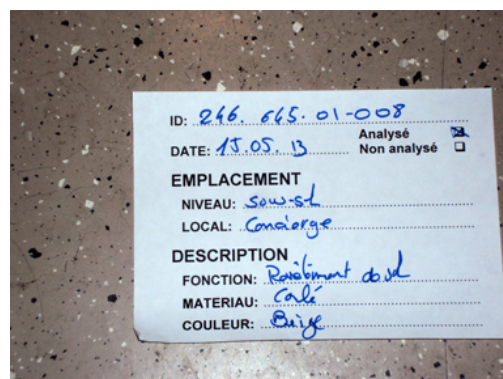 ID: 246.645.01-008
Analysé
DATE: 15.05.13 Non analysé
EMPLACEMENT
NIVEAU: Sous-sl
LOCAL: Concierge
DESCRIPTION
FONCTION: Revêtiment do sol
MATERIAU: Collé
COULEUR: Beige